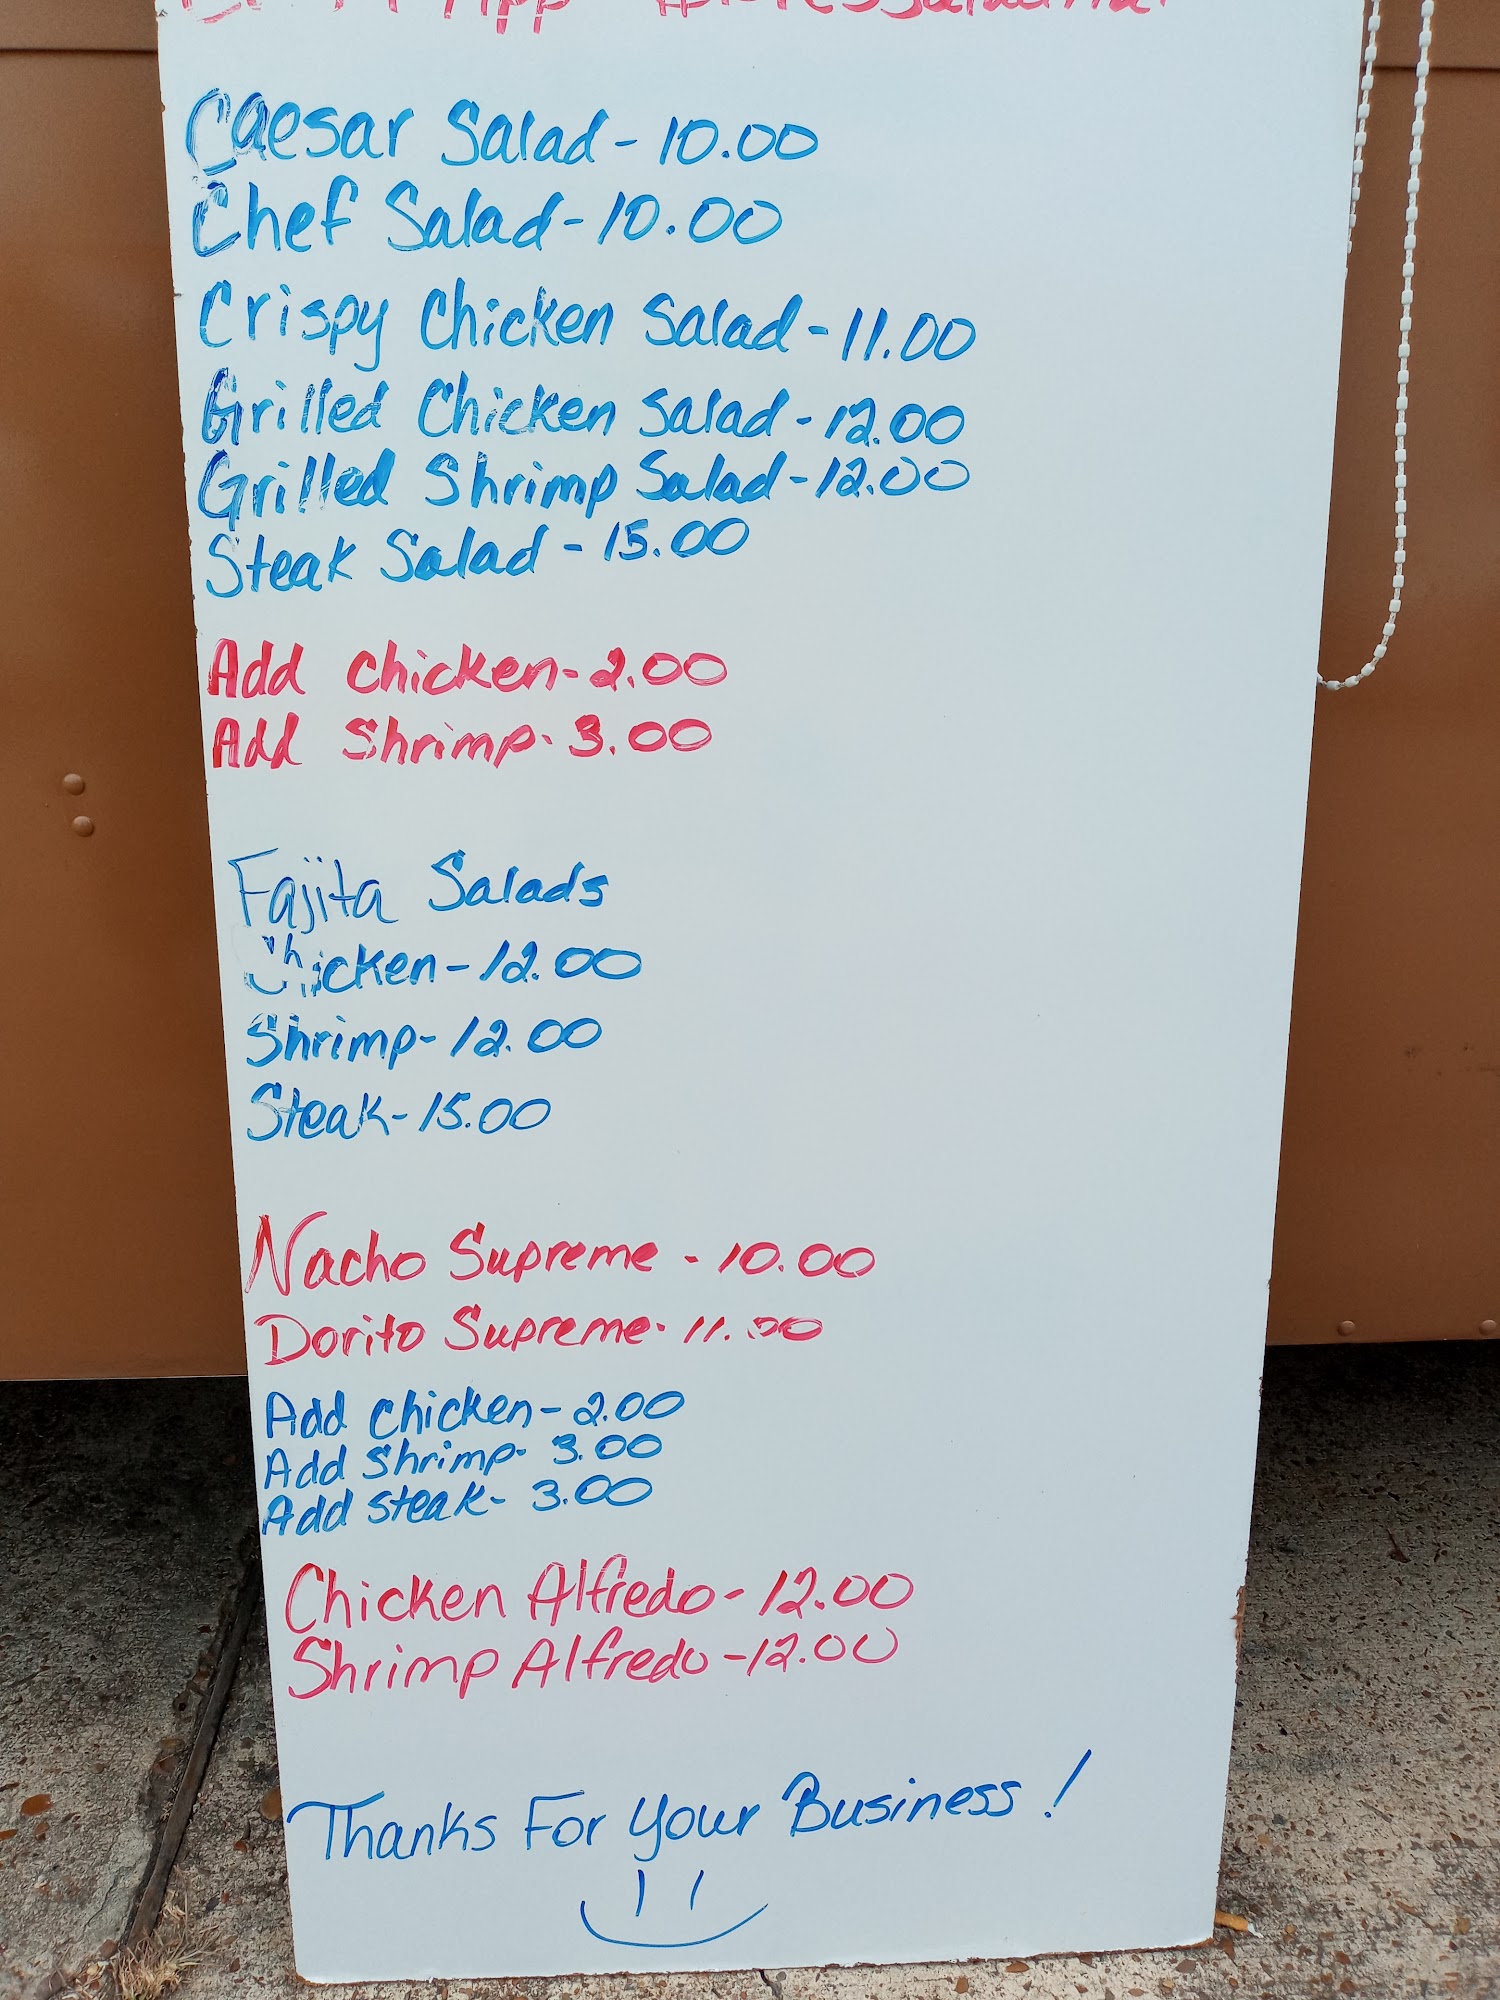 App
Caesar Salad - 10.00
Chef Salad - 10.00
Crispy Chicken Salad - 11.00
Grilled Chicken Salad - 12.00
Grilled Shrimp Salad - 12.00
Steak Salad - 15.00
Add chicken - 2.00
Add Shrimp - 3.00
Fajita Salads
Chicken - 12.00
Shrimp - 12.00
Steak - 15.00
Nacho Supreme - 10.00
Dorito Supreme - 11.00
Add chicken - 2.00
Add shrimp - 3.00
Add steak - 3.00
Chicken Alfredo - 12.00
Shrimp Alfredo - 12.00
Thanks For Your Business!